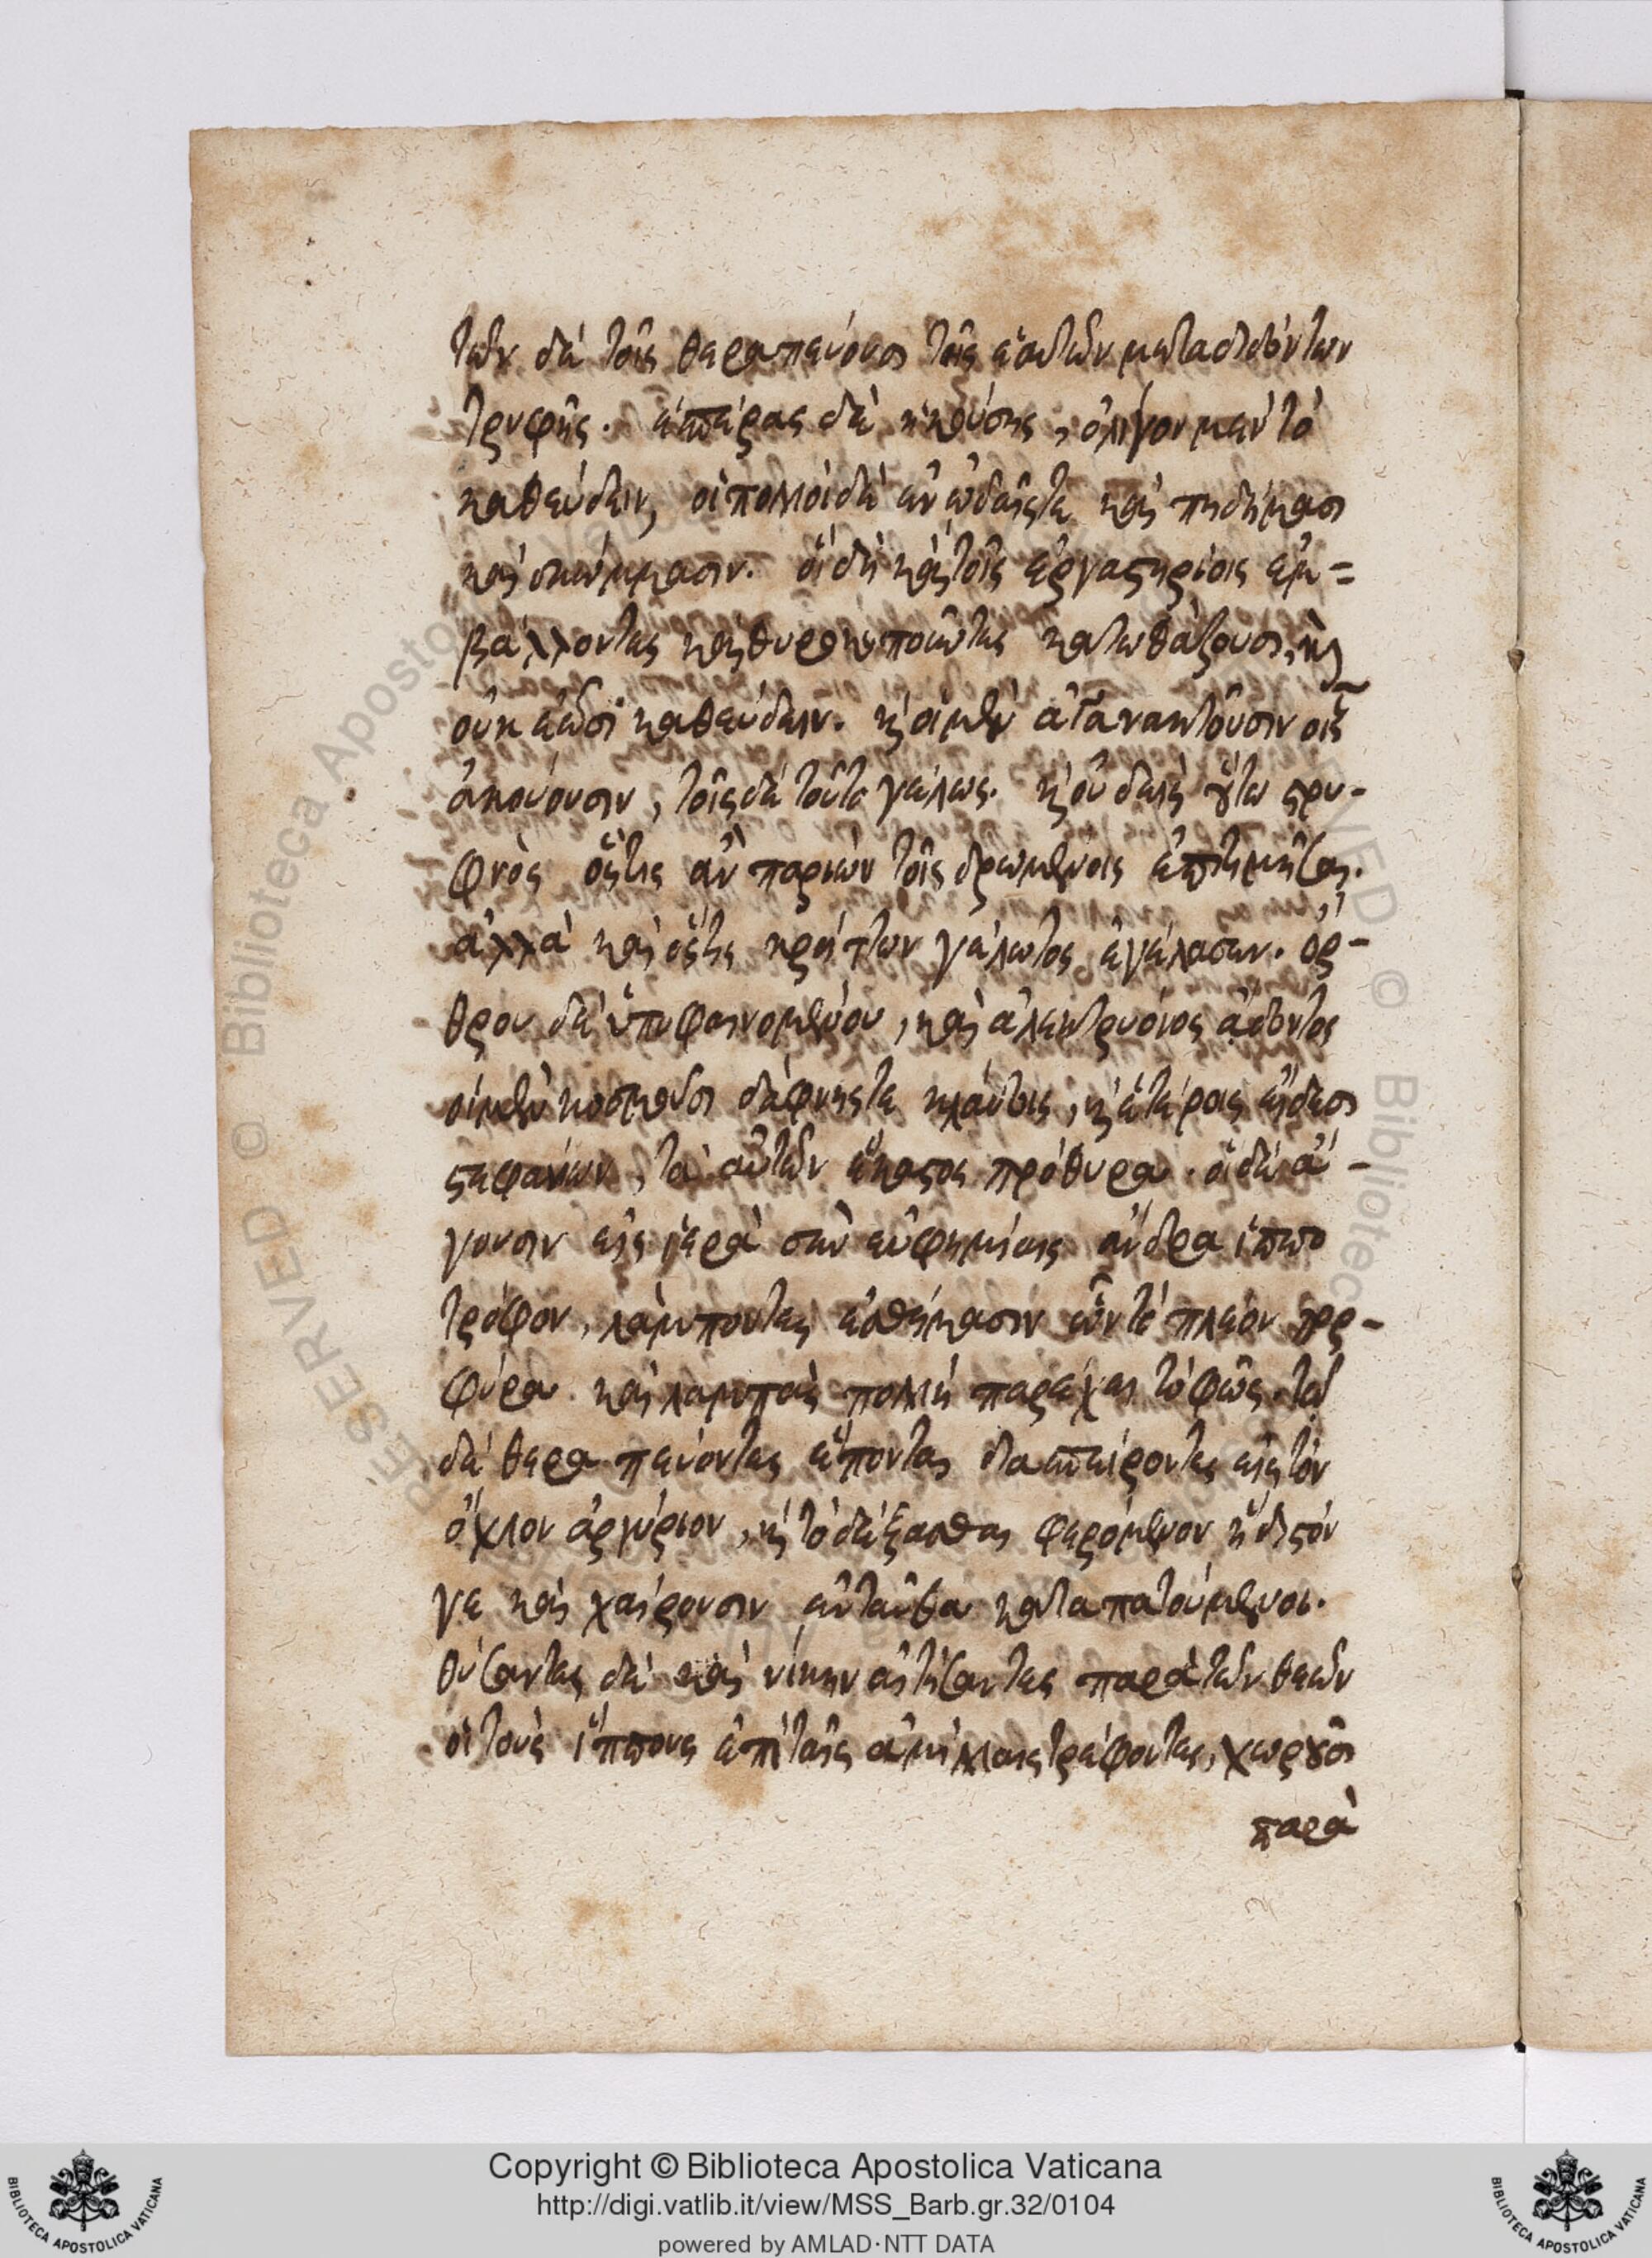 τῶν δὲ τοῖς θεραπεύουσι τῆς ἑαυτῶν μεταδιδόντων
τρυφῆς. ἑσπέρας δὲ ἡκούσης, ὀλίγον μὲν τὸ
καθεύδειν, οἱ πολλοὶ δὲ ἐν ᾠδαῖς τε καὶ πηδήμασι
καὶ σκώμμασιν. οἱ δὴ καὶ τοῖς ἐργαστηρίοις ἐμ=
βάλλοντες καὶ θυροκοποῦντες κατωθάζουσι, καὶ
οὐκ ἐῶσι καθεύδειν. καὶ οἱ μὲν ἀγανακτοῦσιν οἷς
ἀκούουσιν, τοῖς δὲ τοῦτο γέλως. καὶ οὐδεὶς οὕτω στρυ-
φνὸς ὅστις ἂν παριὼν τοῖς δρωμένοις ἐπιτιμήσαι.
ἀλλὰ καὶ ὅστις κρείττων γέλωτος ἐγέλασεν. ὄρ-
θρου δὲ ὑποφαινομένου, καὶ ἀλεκτρυόνος ᾄδοντος
οἱ μὲν κοσμοῦσι δάφνης τε κλάδοις, καὶ ἑτέροις εἴδεσι
στεφάνων, τὰ αὑτῶν ἕκαστος πρόθυρα. οἱ δὲ ἄ-
γουσιν εἰς ἱερὰ σὺν εὐφημίαις ἄνδρα ἱππο
τρόφον, λάμποντες ἐσθήμασιν ὧν τὸ πλέον πορ-
φύρα. καὶ λαμπὰς πολλὴ παρέχει τὸ φῶς. τοὺς
δὲ θεραπεύοντες ἕπονται διασπείροντες εἰς τὸν
ὄχλον ἀργύριον, καὶ τὸ δέξασθαι φερόμενον ἥδιστόν
γε καὶ χαίρουσιν ἐνταῦθα καταπατούμενοι.
θύσαντες δὲ καὶ νίκην αἰτήσαντες παρὰ τῶν θεῶν
οἱ τοὺς ἵππους ἐπὶ ταῖς ἁμίλλαις τρέφοντες, χωροῦσι
παρὰ
Copyright © Biblioteca Apostolica Vaticana
http://digi.vatlib.it/view/MSS_Barb.gr.32/0104
powered by AMLAD·NTT DATA
BIBLIOTECA APOSTOLICA VATICANA
BIBLIOTECA APOSTOLICA VATICANA